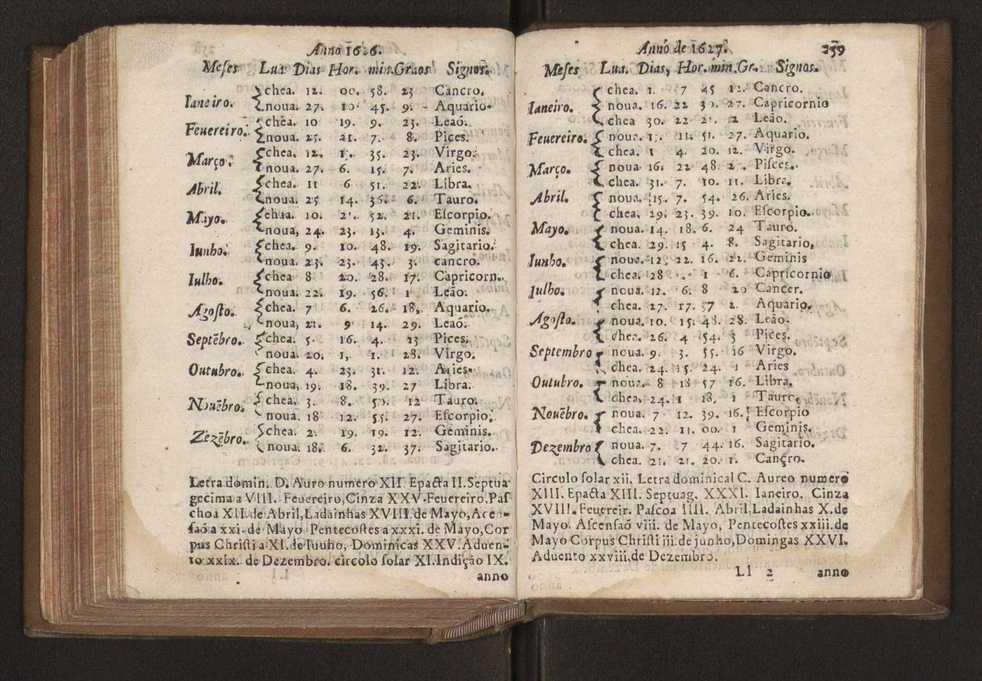 Anno 1626.
Meses Lua Dias Hor. min. Graos Signos.
Ianeiro. chea. 12. 00. 58. 23 Cancro.
noua. 27. 10 45. 9. Aquario
Feuereiro. chea. 10 19. 9. 23. Leaó.
noua. 25. 21. 7. 8. Pices.
Março. chea. 12. 35. 23. Virgo.
noua. 27. 6. 15. 7. Aries.
Abril. chea. 11 6 51. 22. Libra.
noua. 25 14. 36. 6. Tauro.
Mayo. chea. 10. 52. 21. Escorpio.
noua, 24. 23. 13. 4. Geminis.
Iunho. chea. 9. 10. 48. 19. Sagitario.
noua. 23. 23. 43. 3. cancro.
Iulho. chea 8 20. 28. 17. Capricorn.
noua. 22. 19. 56. 1 Leão.
Agosto. chea. 7 6. 26. 18. Aquario.
noua, 21. 9 14. 29. Leaó.
Septēbro. chea. 5. 16. 4. 23 Pices.
noua. 20. 1. 1. 28. Virgo.
Outubro. chea. 4. 23. 31. 12. Aries.
noua, 19. 18. 39. 27 Libra.
Nouēbro. chea. 3. 8. 50. 12 Tauro.
noua. 18 12. 55. 27. Escorpio.
Zēzēbro. chea. 2. 19. 19. 12. Geminis.
noua. 18. 6. 32. 37. Sagitario.
Letra domin. D. Auro numero XII Epacta II. Septua
gecima a VIII. Feuereiro, Cinza XXV. Feuereiro. Pas
choa XII. de Abril, Ladainhas XVIII. de Mayo, Acen-
saõ a xxi. de Mayo Pentecostes a xxxi. de Mayo, Cor
pus Christi a XI. de Iunho, Dominicas XXV. Aduen-
to xxix. de Dezembro. circolo solar XI. Indição IX.
anno
Anno de 1627. 259
Meses Lua. Dias, Hor. min. Gr. Signos.
Ianeiro. chea. 1. 7 45 12. Cancro.
noua. 16. 22 30. 27. Capricornio
chea 30. 22 21. 2 Leão.
Feuereiro. noua. 11. 51. 27. Aquario.
chea. 1 4. 20. 12. Virgo.
Março. noua 16. 22 48. Pisces.
chea. 31. 7. 10. 11. Libra.
Abril. noua. 15. 7. 54. 26. Aries.
chea. 29. 23. 39. 10. Escorpio.
Mayo. noua. 14. 18. 6. 24 Tauro.
chea. 29. 15 4. 8. Sagitario,
Iunho. noua. 12. 22. 16. 22. Geminis
chea. 28 1 6. Capricornio
Julho. noua. 12. 6. 8 20 Cancer.
chea. 27. 17. 57 2. Aquario.
Agosto. noua. 10. 15. 48. 28. Leão.
chea. 26. 4 54. 3 Pices.
Septembro noua. 9. 3. 55. 16 Virgo.
chea. 24. 15. 24. 1 Aries
Outubro. noua. 8 18 57 16. Libra.
chea, 24. 1 18, 1 Tauro.
Nouēbro. noua. 7 12. 39. 16. Escorpio
chea. 22. 11. 00. 1 Geminis.
Dezembro noua. 7. 7 44. 16. Sagitario.
chea. 21. 21. 20. 1. Cançro.
Circulo solar xii. Letra dominical C. Aureo numero
XIII. Epacta XIII. Septuag. XXXI. Ianeiro. Cinza
XVIII. Feuereir. Pascoa IIII. Abril, Ladainhas X. de
Mayo. Ascensaõ viii. de Mayo, Pentecostes xxiii. de
Mayo Corpus Christi iii. de junho, Domingas XXVI.
Aduento xxviii, de Dezembro.
Ll 2 anno